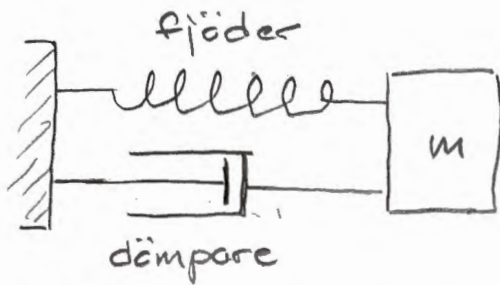 fjöder
m
dämpare